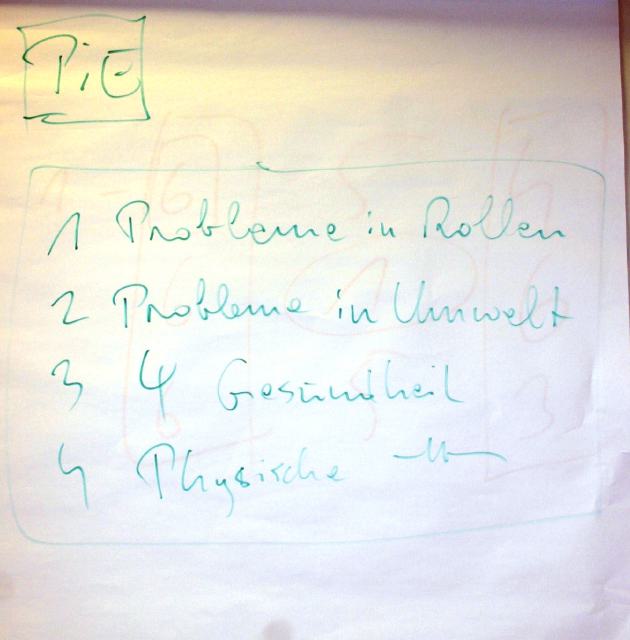 PiE
1 Probleme in Rollen
2 Probleme in Umwelt
3 Ψ Gesundheit
4 Physische –"–